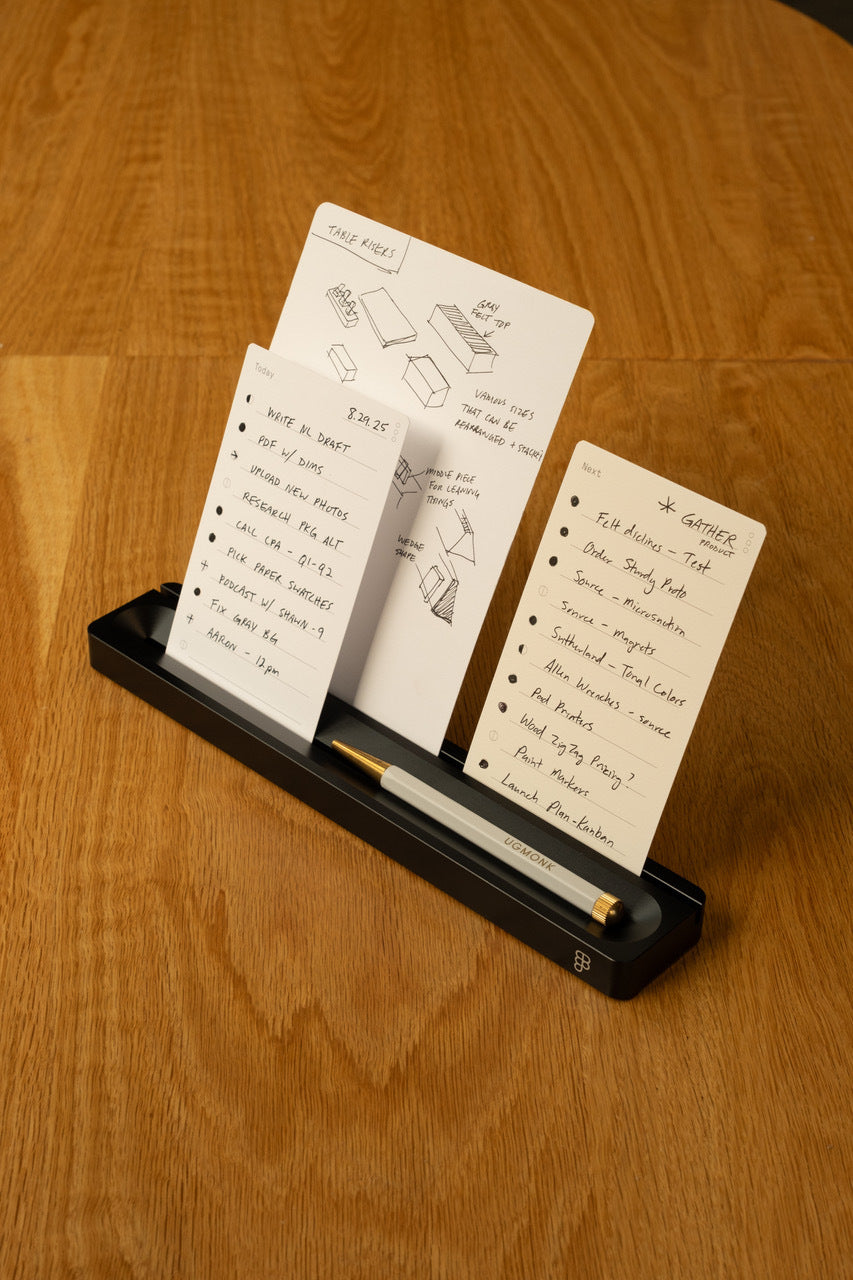 TABLE RISERS
GRAY
FELT TOP
VARIOUS SIZES
THAT CAN BE
REARRANGED + STACKED
MIDDLE PIECE
FOR LEANING
THINGS
WEDGE
SHAPE
Today
8.29.25
WRITE NL DRAFT
PDF W/ DIMS
UPLOAD NEW PHOTOS
RESEARCH PKG ALT
CALL CPA - Q1-Q2
PICK PAPER SWATCHES
PODCAST W/ SHAWN - 9
FIX GRAY BG
AARON - 12pm
Next
GATHER
PRODUCT
Felt - Test
Order Sturdy Proto
Source - microsuction
Source - magnets
Sutherland - Tonal Colors
Allen Wrenches - source
Pad Printers
Wood Zig Zag Pricing?
Paint Markers
Launch Plan - Kanban
UGMONK